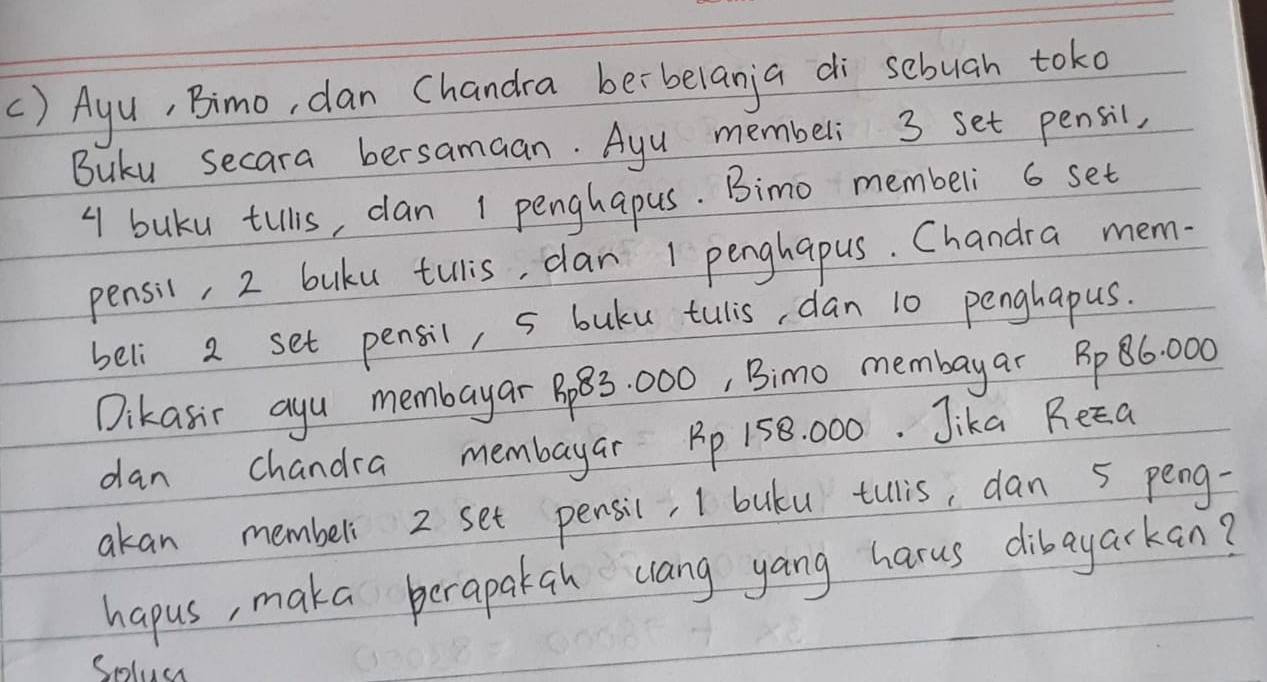 c) Ayu, Bimo, dan Chandra berbelanja di sebuah toko
Buku secara bersamaan. Ayu membeli 3 set pensil,
4 buku tulis, dan 1 penghapus. Bimo membeli 6 set
pensil, 2 buku tulis, dan 1 penghapus. Chandra mem-
beli 2 set pensil, 5 buku tulis, dan 10 penghapus.
Dikasir ayu membayar Rp83.000, Bimo membayar Rp86.000
dan Chandra membayar Rp158.000. Jika Reza
akan membeli 2 set pensil, 1 buku tulis, dan 5 peng-
hapus, maka berapakah uang yang harus dibayarkan?